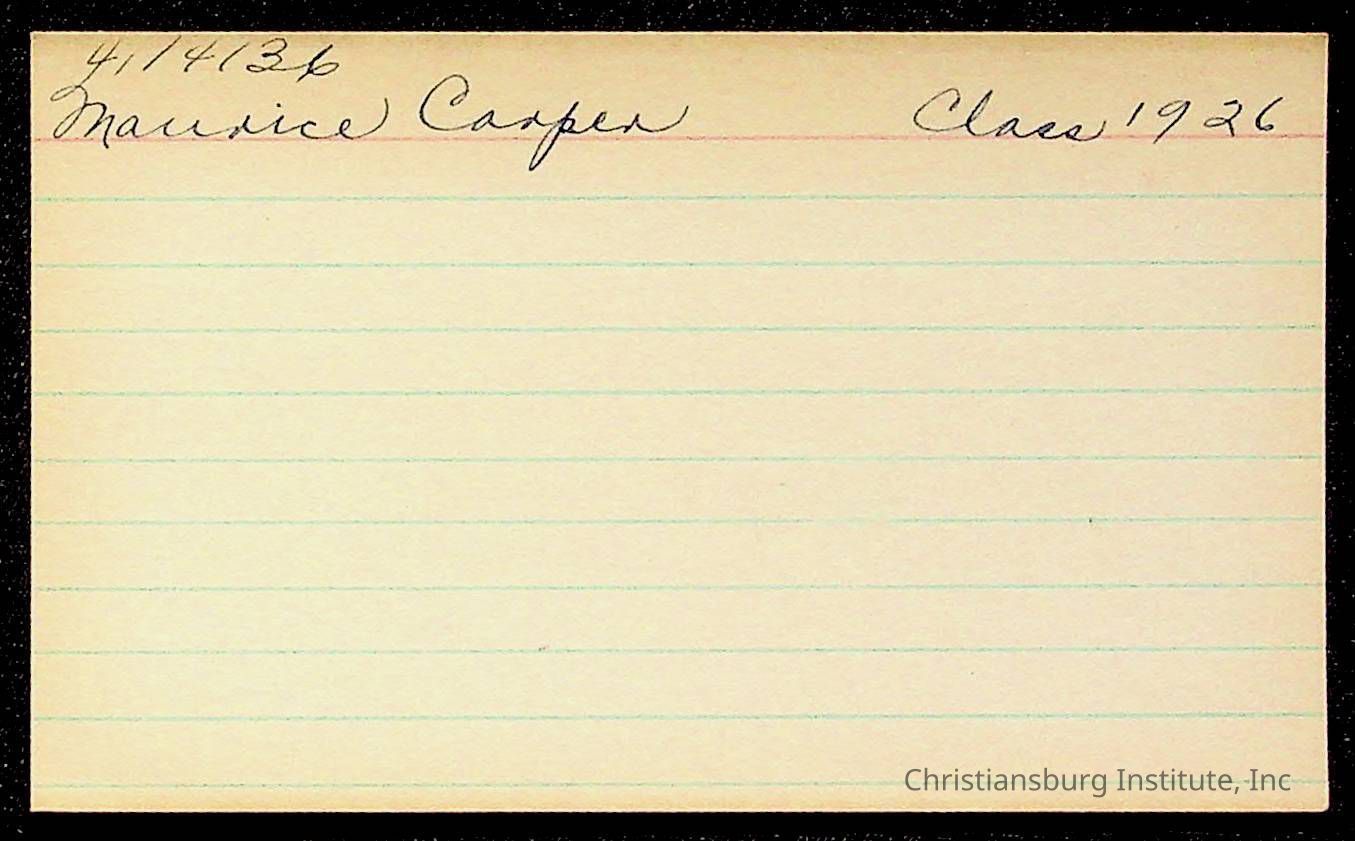 4/14/36
Maurice Carper Class 1926
Christiansburg Institute, Inc